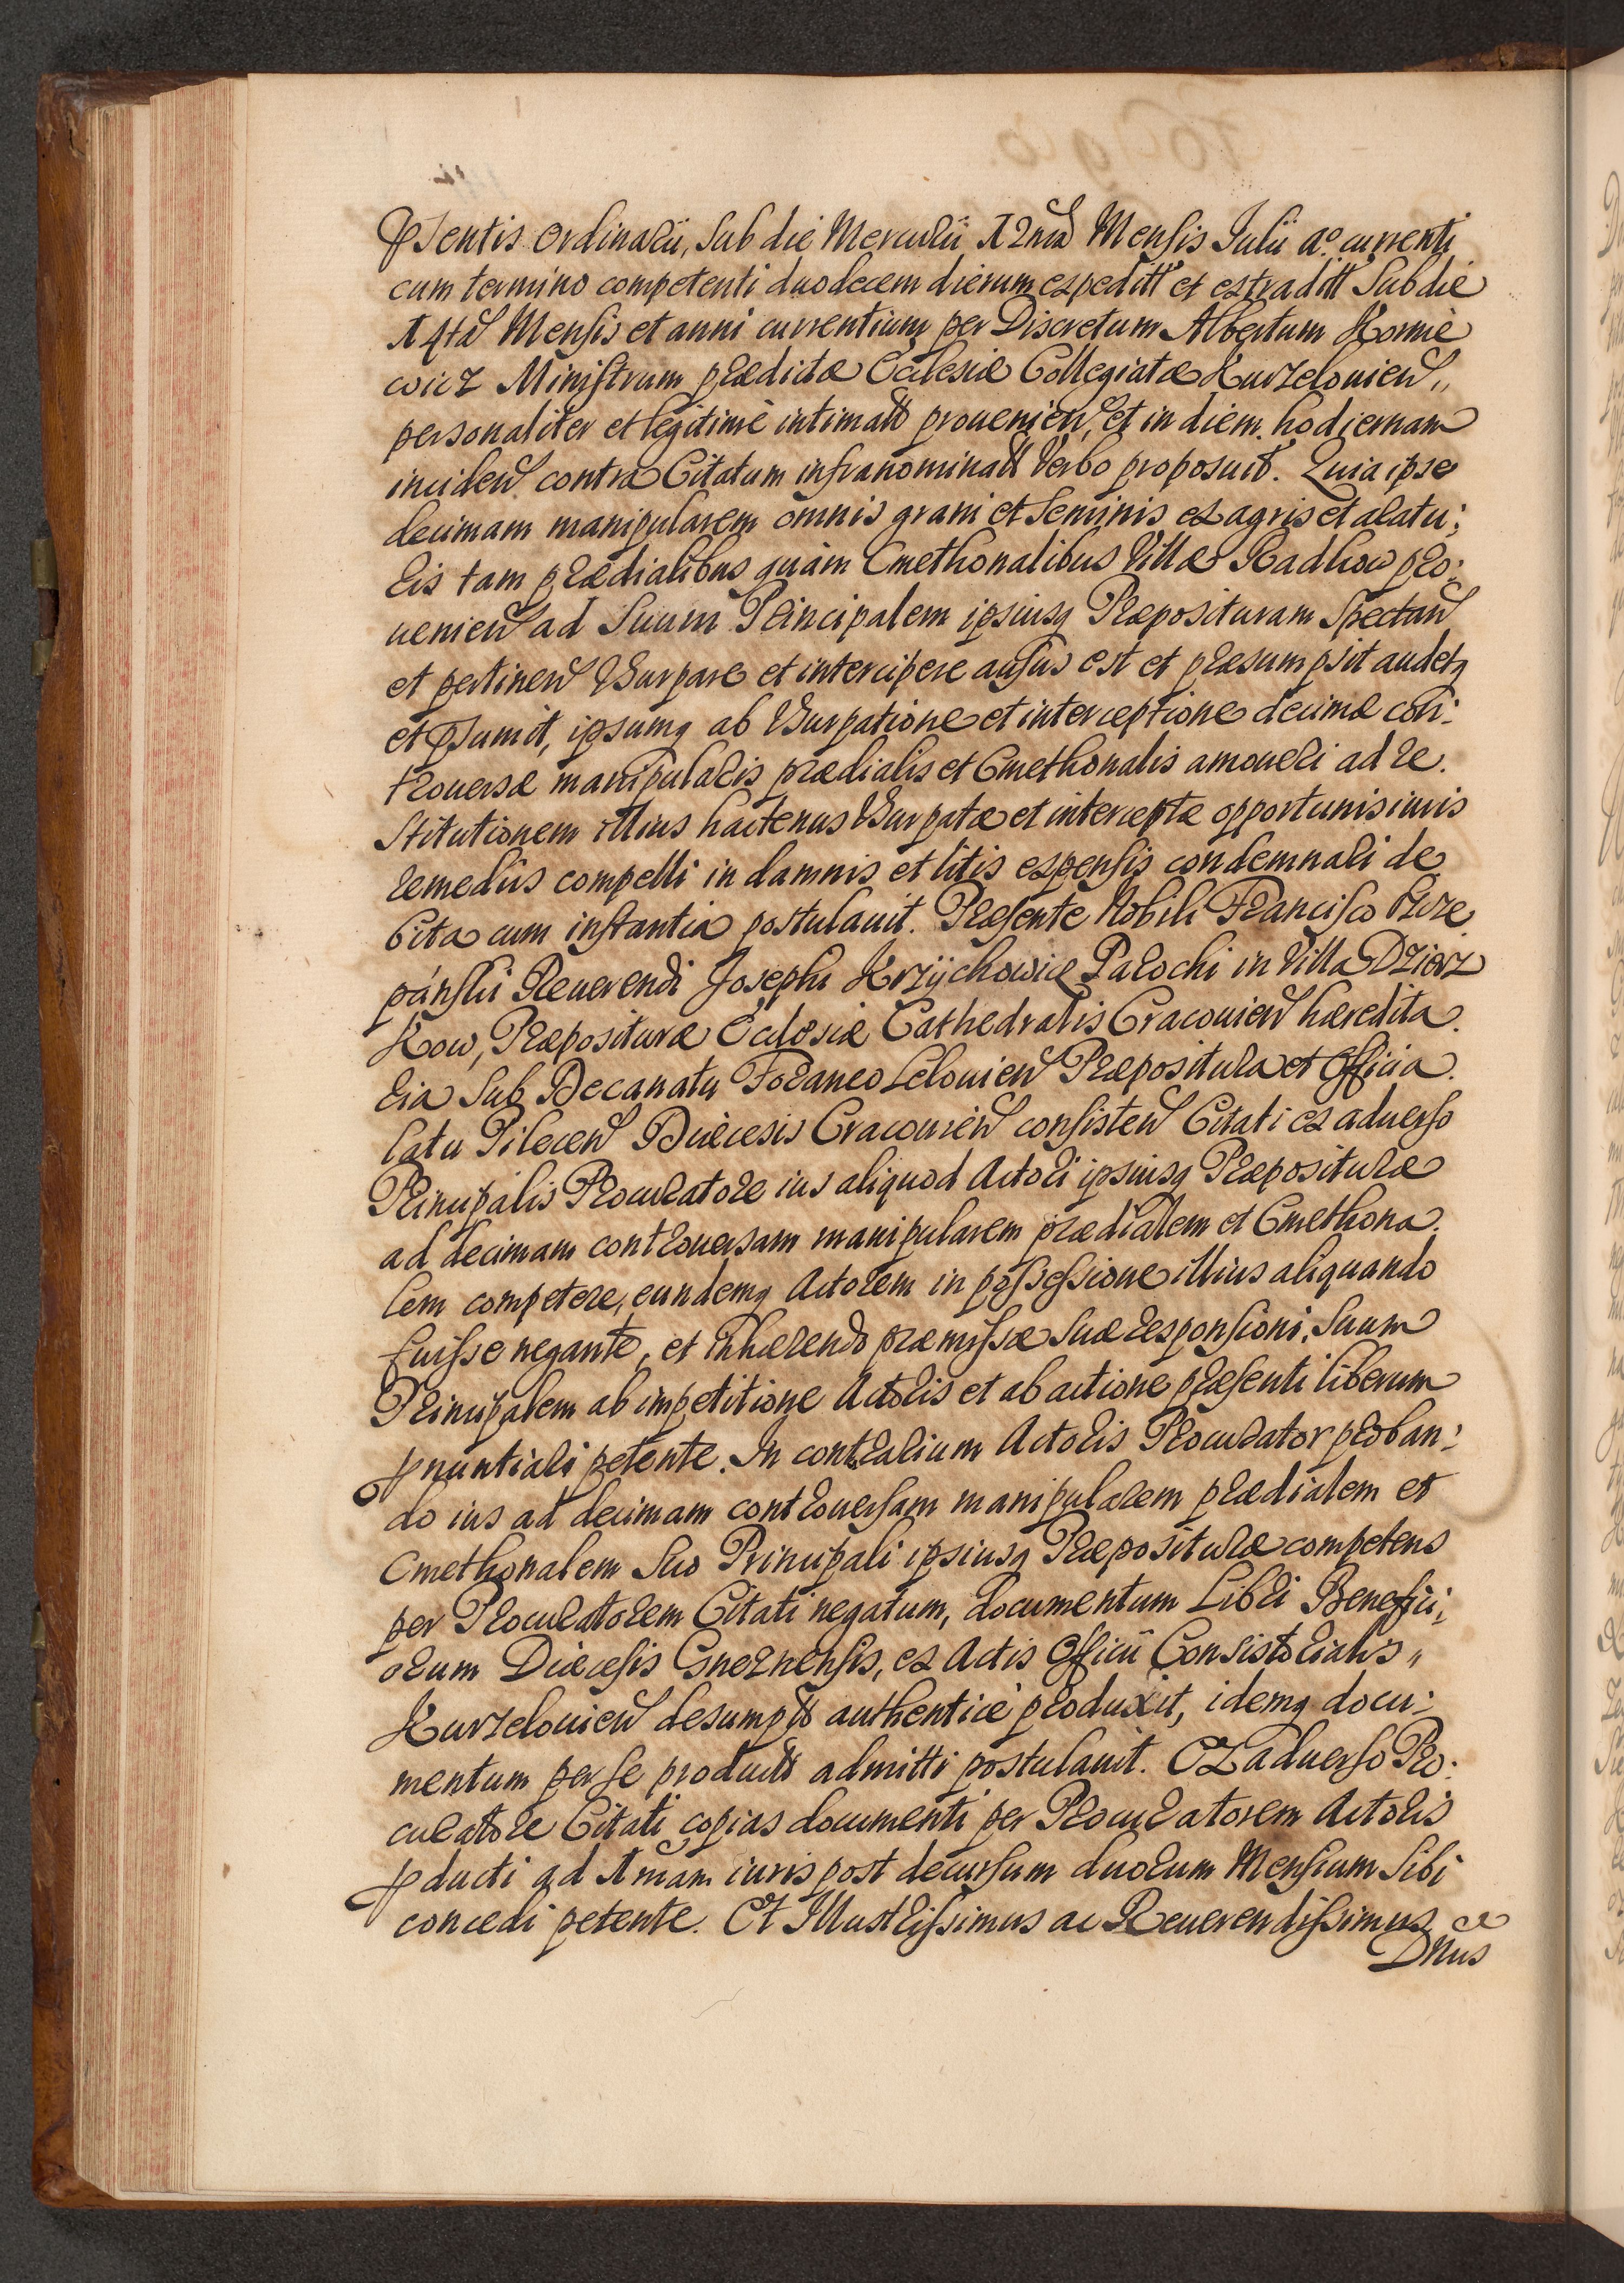 Pŝentis Ordinarii, Sub die Mercurii 12ma Mensis Julii ao. currenti
cum termino competenti duodecem dierum expeditt et extraditt Sub die
14ta Mensis et anni currentium per Discretum Albertum Kornie
wicz Ministrum prædictæ Ecclesiæ Collegiatæ Kurzelovien̄"
personaliter et legitimè intimatt provenien̄, et in diem hodiernam
inciden̄ contra Citatum infranominatt Verbo proposuit. Quia ipse
decimam manipularem omnis grani et Seminis ex agris et aratu:
ris tam prædialibus quàm Cmethonalibus Villæ Radkow pro:
uenien̄ ad Suum Principalem ipsiusq Præposituram Spectan̄
et pertinen̄ Vsurpare et intercipere ausus est et præsumpsit audetq
et pŝumit, ipsumq ab Vsurpatione et interceptione decimæ con:
trouersæ manipularis prædialis et Cmethonalis amoueri ad re.
stitutionem illius hactenus Vsurpatæ et interceptæ opportunis iuris
remediis compelli in damnis et litis expensis condemnari de
bita cum instantia postulauit. Præsente Nobili Francisco
pánski Reuerendi Josephi Krzÿchowicz Parochi in Villa Dzierz
kow, Præposituræ Ecclesiæ Cathedralis Cracouien̄ hæredita.
ria Sub Decanatu Foraneo Lelouien̄ Præpositura et Officia.
latu Pilecen̄ Diæcesis Cracouien̄ consisten̄ Citati ex aduerso
Principalis Procuratore ius aliquod Actori ipsiusq Præposituræ
ad decimam controuersam manipularem prædialem et Cmethona.
lem competere, eundemq Actorem in possessione illius aliquando
fuisse negante, et inhærendo præmissæ Suæ responsioni, Suum
Principalem ab impetitione Actoris et ab actione præsenti liberum
pnuntiari petente. In contrarium Actoris Procurator proban:
do ius ad decimam controuersam manipularem prædialem et
Cmethonalem Suo Principali ipsiusq Præposituræ competens
per Procuratorem Citati negatum, documentum Libri Benefici:
orum Diæcesis Gneznensis, ex Actis Officii Consistorialis "
Kurzelouien̄ desumptt authenticè produxit, idemq docu:
mentum per se productt admitti postulauit. Ex aduerso Pro:
curatore Citati copias documenti per Procuratorem Actoris
pducti ad 1mam iuris post decursum duorum Mensium Sibi
concedi petente. Et Illustrissimus ac Reuerendissimus
Dn̄us